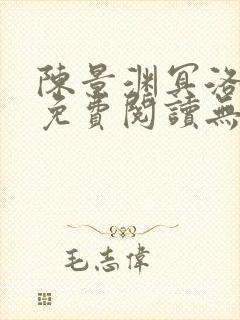 陳景淵冥洛
免費閱讀無
毛志偉